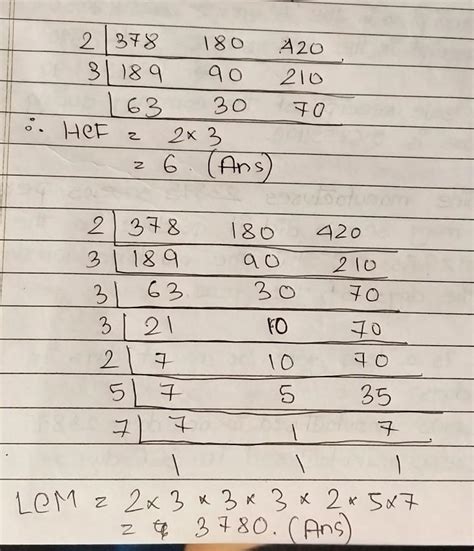 2 | 378 180 420
3 | 189 90 210
| 63 30 70
∴ HCF = 2 × 3
= 6. (Ans)
2 | 378 180 420
3 | 189 90 210
3 | 63 30 70
3 | 21 10 70
2 | 7 10 70
5 | 7 5 35
7 | 7 1 7
1 1 1
LCM = 2 × 3 × 3 × 3 × 2 × 5 × 7
= 3780. (Ans)